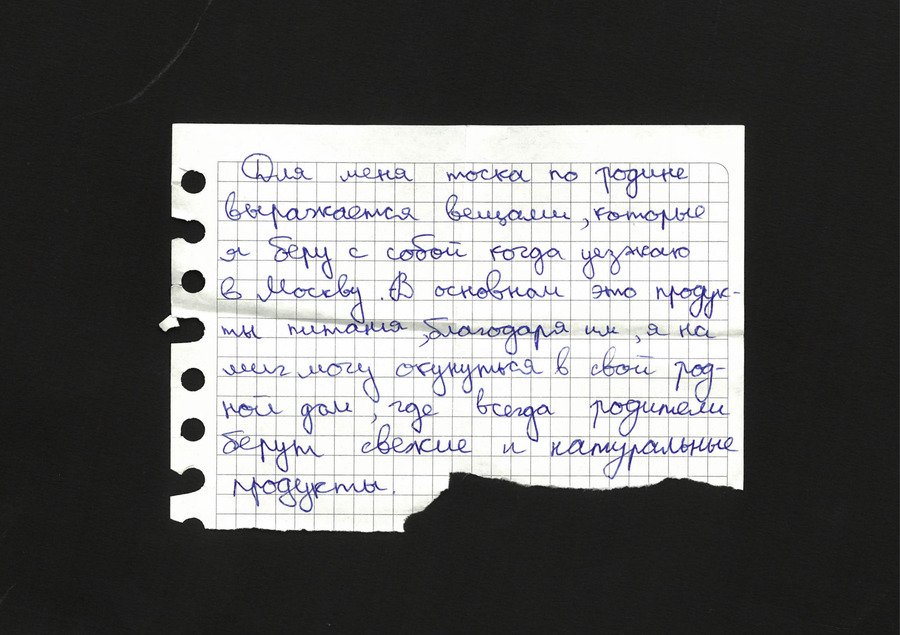 Для меня тоска по родине
выражается вещами, которые
я беру с собой когда уезжаю
в Москву. В основном это продук-
ты питания, благодаря им, я на
миг могу окунуться в свой род-
ной дом, где всегда родители
берут свежие и натуральные
продукты.